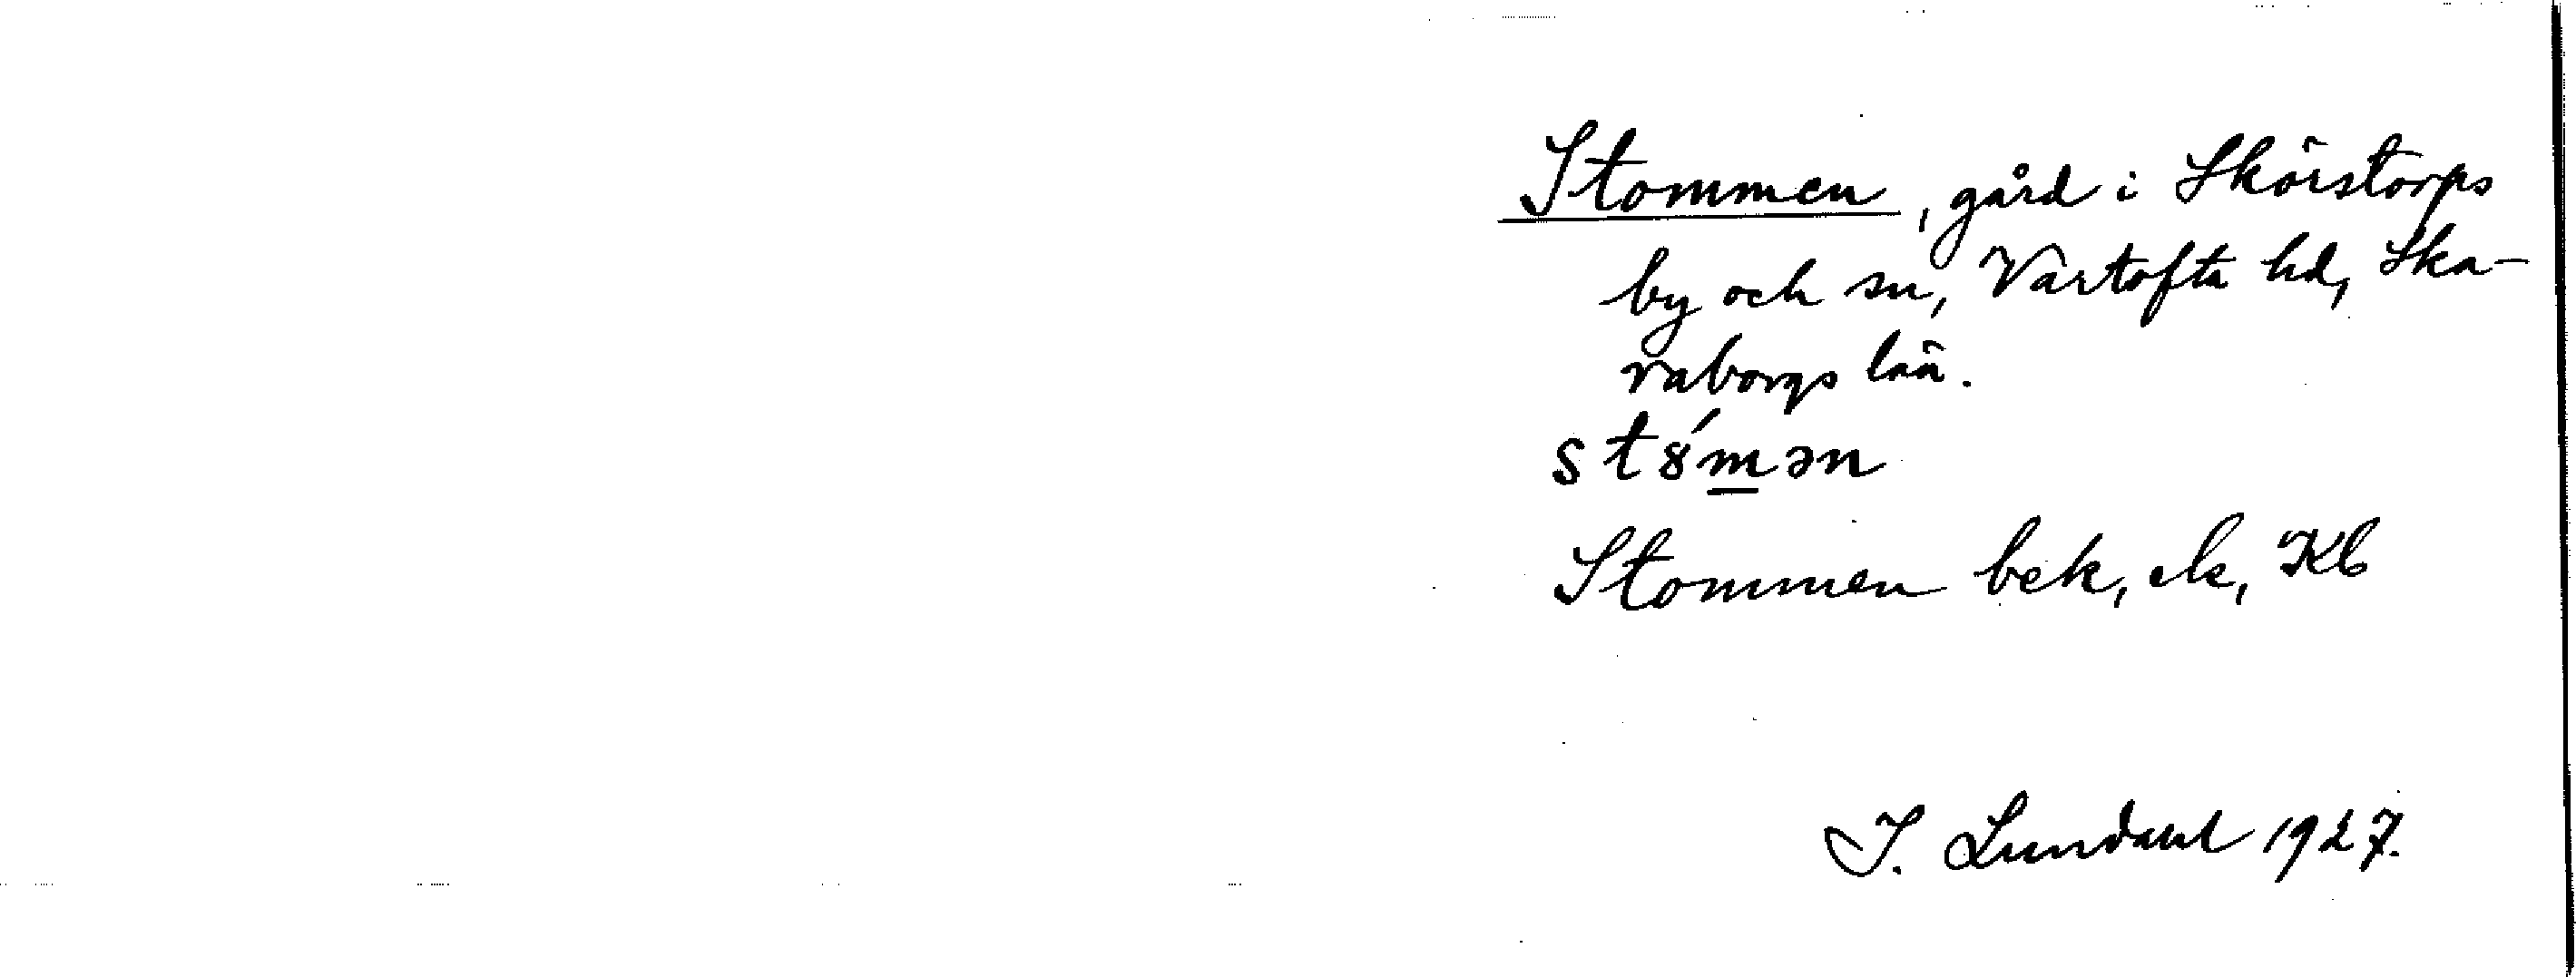 Stommen, gård i Skörstorps
by och sn, Vartofta hd, Ska-
raborgs län.
stɤ́mən
Stommen bek, els, Kb
I. Lundahl 1927.